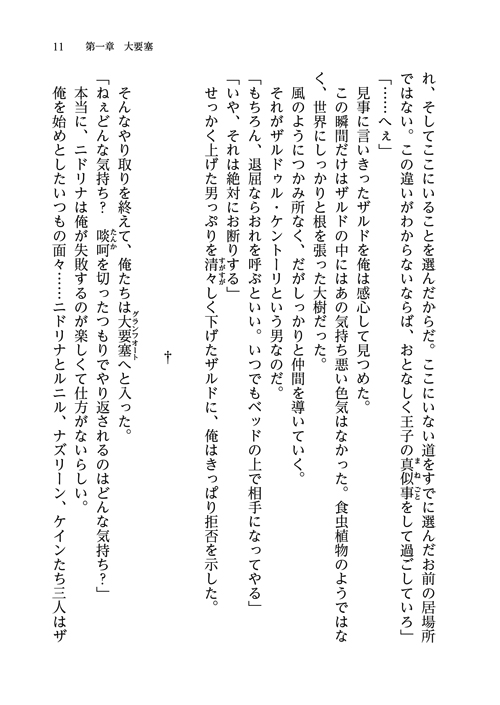 11　第一章　大要塞
れ、そしてここにいることを選んだからだ。ここにいない道をすでに選んだお前の居場所
ではない。この違いがわからないならば、おとなしく王子の真似事をして過ごしていろ」
「……へぇ」
見事に言いきったザルドを俺は感心して見つめた。
この瞬間だけはザルドの中にはあの気持ち悪い色気はなかった。食虫植物のようではな
く、世界にしっかりと根を張った大樹だった。
風のようにつかみ所なく、だがしっかりと仲間を導いていく。
それがザルドゥル・ケントーリという男なのだ。
「もちろん、退屈ならおれを呼ぶといい。いつでもベッドの上で相手になってやる」
「いや、それは絶対にお断りする」
せっかく上げた男っぷりを清々しく下げたザルドに、俺はきっぱり拒否を示した。
†
そんなやり取りを終えて、俺たちは大要塞へと入った。
「ねぇどんな気持ち？　啖呵を切ったつもりでやり返されるのはどんな気持ち？」
本当に、ニドリナは俺が失敗するのが楽しくて仕方がないらしい。
俺を始めとしたいつもの面々……ニドリナとルニル、ナズリーン、ケインたち三人はザ